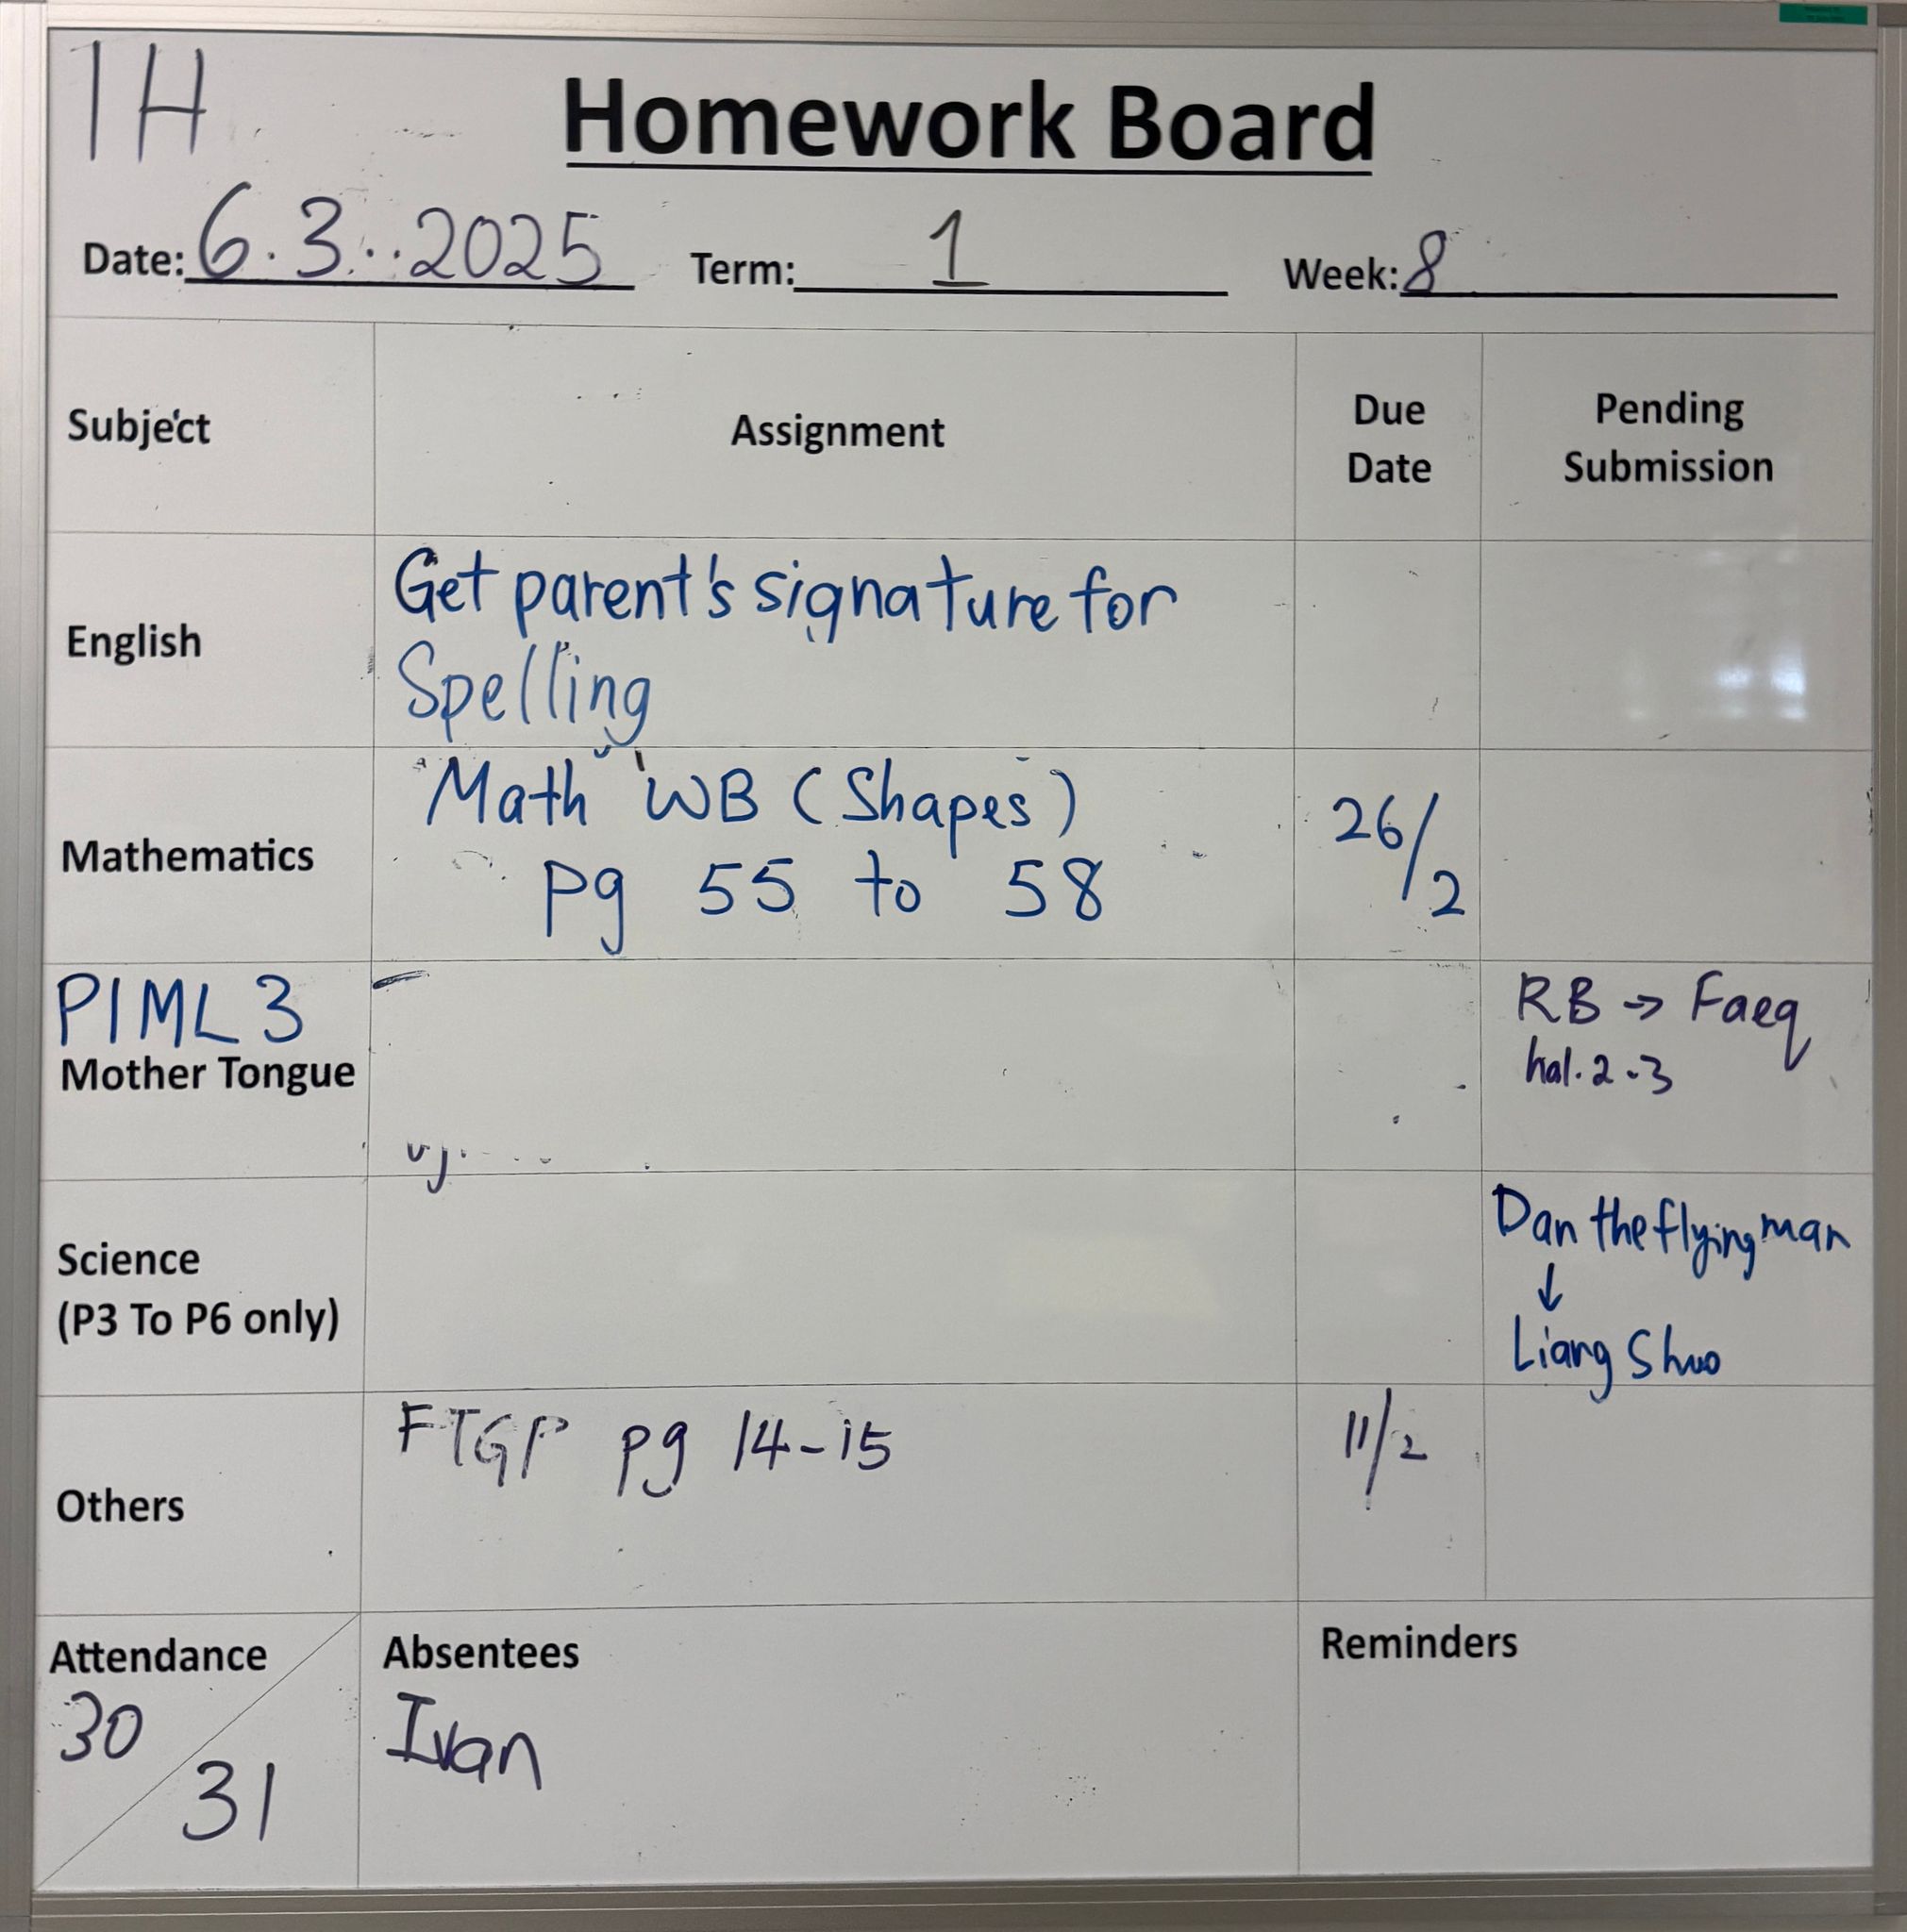 1H
Homework Board
Date: 6.3.2025 Term: 1 Week: 8
Subject Assignment Due Date Pending Submission
English Get parent's signature for
Spelling
Mathematics Math WB (Shapes) 26/2
pg 55 to 58
PIML 3
Mother Tongue
RB → Faeq
hal. 2-3
Science
(P3 To P6 only)
Dan the flying man
↓
Liang Shuo
Others FTGP pg 14-15 11/2
Attendance Absentees Reminders
30 Ivan
31